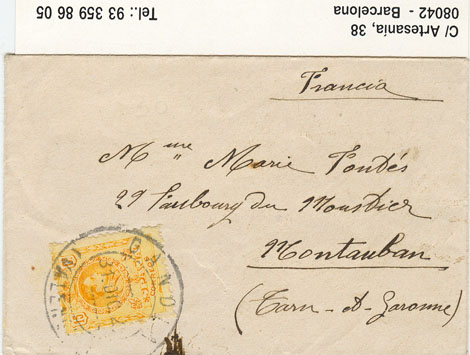 C/ Artesanía, 38
08042 - Barcelona
Tel.: 93 359 86 05
Francia
Mme Marie Pondés
29 Faubourg du Moustier
Montauban
(Tarn-et-Garonne)
GANDIA